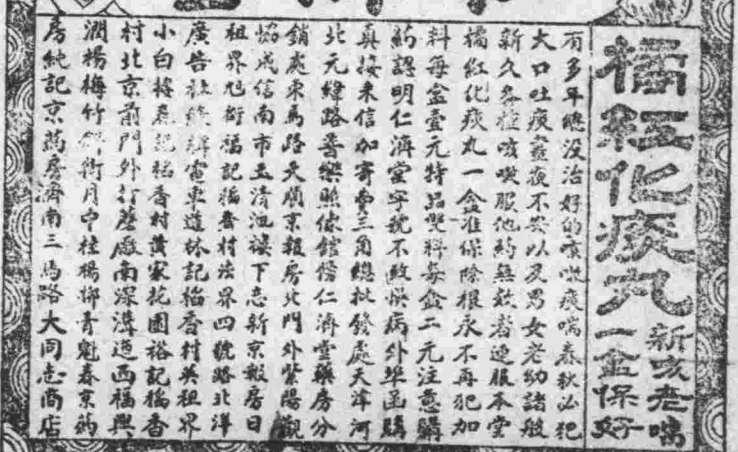 橘紅化痰丸
新咳老喘
一盒保好
有多年總没治好的咳嗽痰喘春秋必犯
大口吐痰晝夜不安以及男女老幼諸般
新久各種咳嗽服他药無效者速服本堂
橘紅化痰丸一盒准保除根永不再犯加
料每盒壹元特品雙料每盒二元注意購
药認明仁濟堂字號不致悮病外埠函購
真接来信加寄費三角總批發處天津河
北元緯路普樂照像館偹仁濟堂藥房分
銷處東馬路天順京報房北門外紫陽觀
協成信南市玉清池樓下志新京報房日
租界旭街福記稻香村法界四號路北洋
廣告社綠牌電車道林記稻香村英租界
小白楼森記稻香村黃家花園裕記稻香
村北京前門外打磨廠南深溝迤西福興
潤楊梅竹斜街月中桂楊柳青魁春京药
房純記京药房濟南三馬路大同志商店